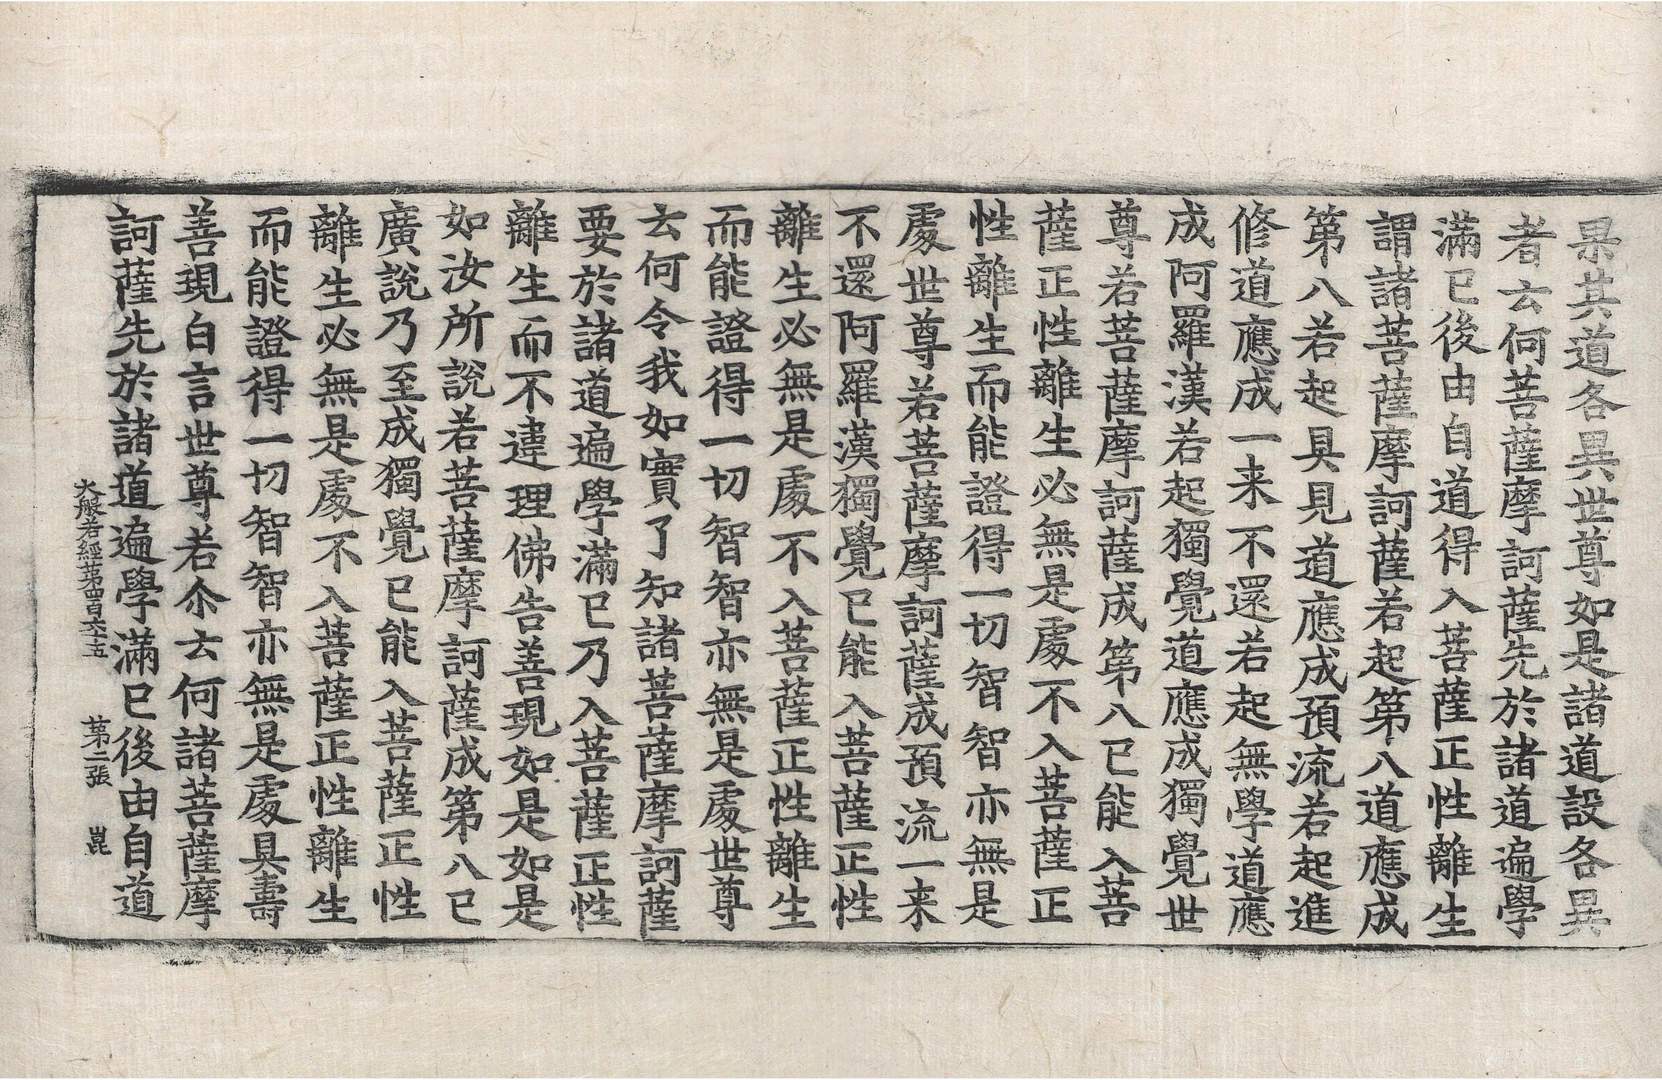 果其道各異世尊如是諸道設各異
者云何菩薩摩訶薩先於諸道遍學
滿已後由自道得入菩薩正性離生
謂諸菩薩摩訶薩若起第八道應成
第八若起具見道應成預流若起進
修道應成一来不還若起無學道應
成阿羅漢若起獨覺道應成獨覺世
尊若菩薩摩訶薩成第八已能入菩
薩正性離生必無是處不入菩薩正
性離生而能證得一切智智亦無是
處世尊若菩薩摩訶薩成預流一来
不還阿羅漢獨覺已能入菩薩正性
離生必無是處不入菩薩正性離生
而能證得一切智智亦無是處世尊
云何令我如實了知諸菩薩摩訶薩
要於諸道遍學滿已乃入菩薩正性
離生而不違理佛告善現如是如是
如汝所說若菩薩摩訶薩成第八已
廣說乃至成獨覺已能入菩薩正性
離生必無是處不入菩薩正性離生
而能證得一切智智亦無是處具壽
善現白言世尊若尒云何諸菩薩摩
訶薩先於諸道遍學滿已後由自道
大般若經第四百六十五 第二張 崑